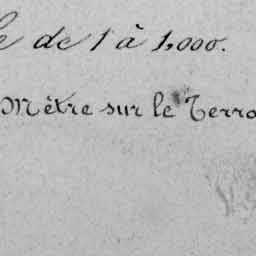 de 1 à 1,000.
Mètre sur le Terra